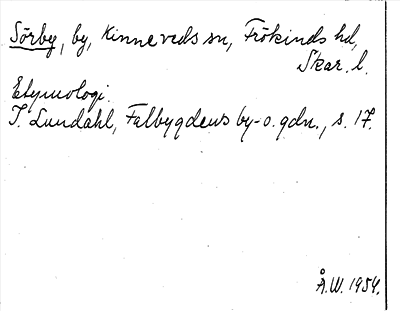 Sörby, by, Kinneveds sn, Frökinds hd,
Skar. l.
Etymologi.
I. Lundahl, Falbygdens by- o. gdn., s. 17.
Å.W. 1954.